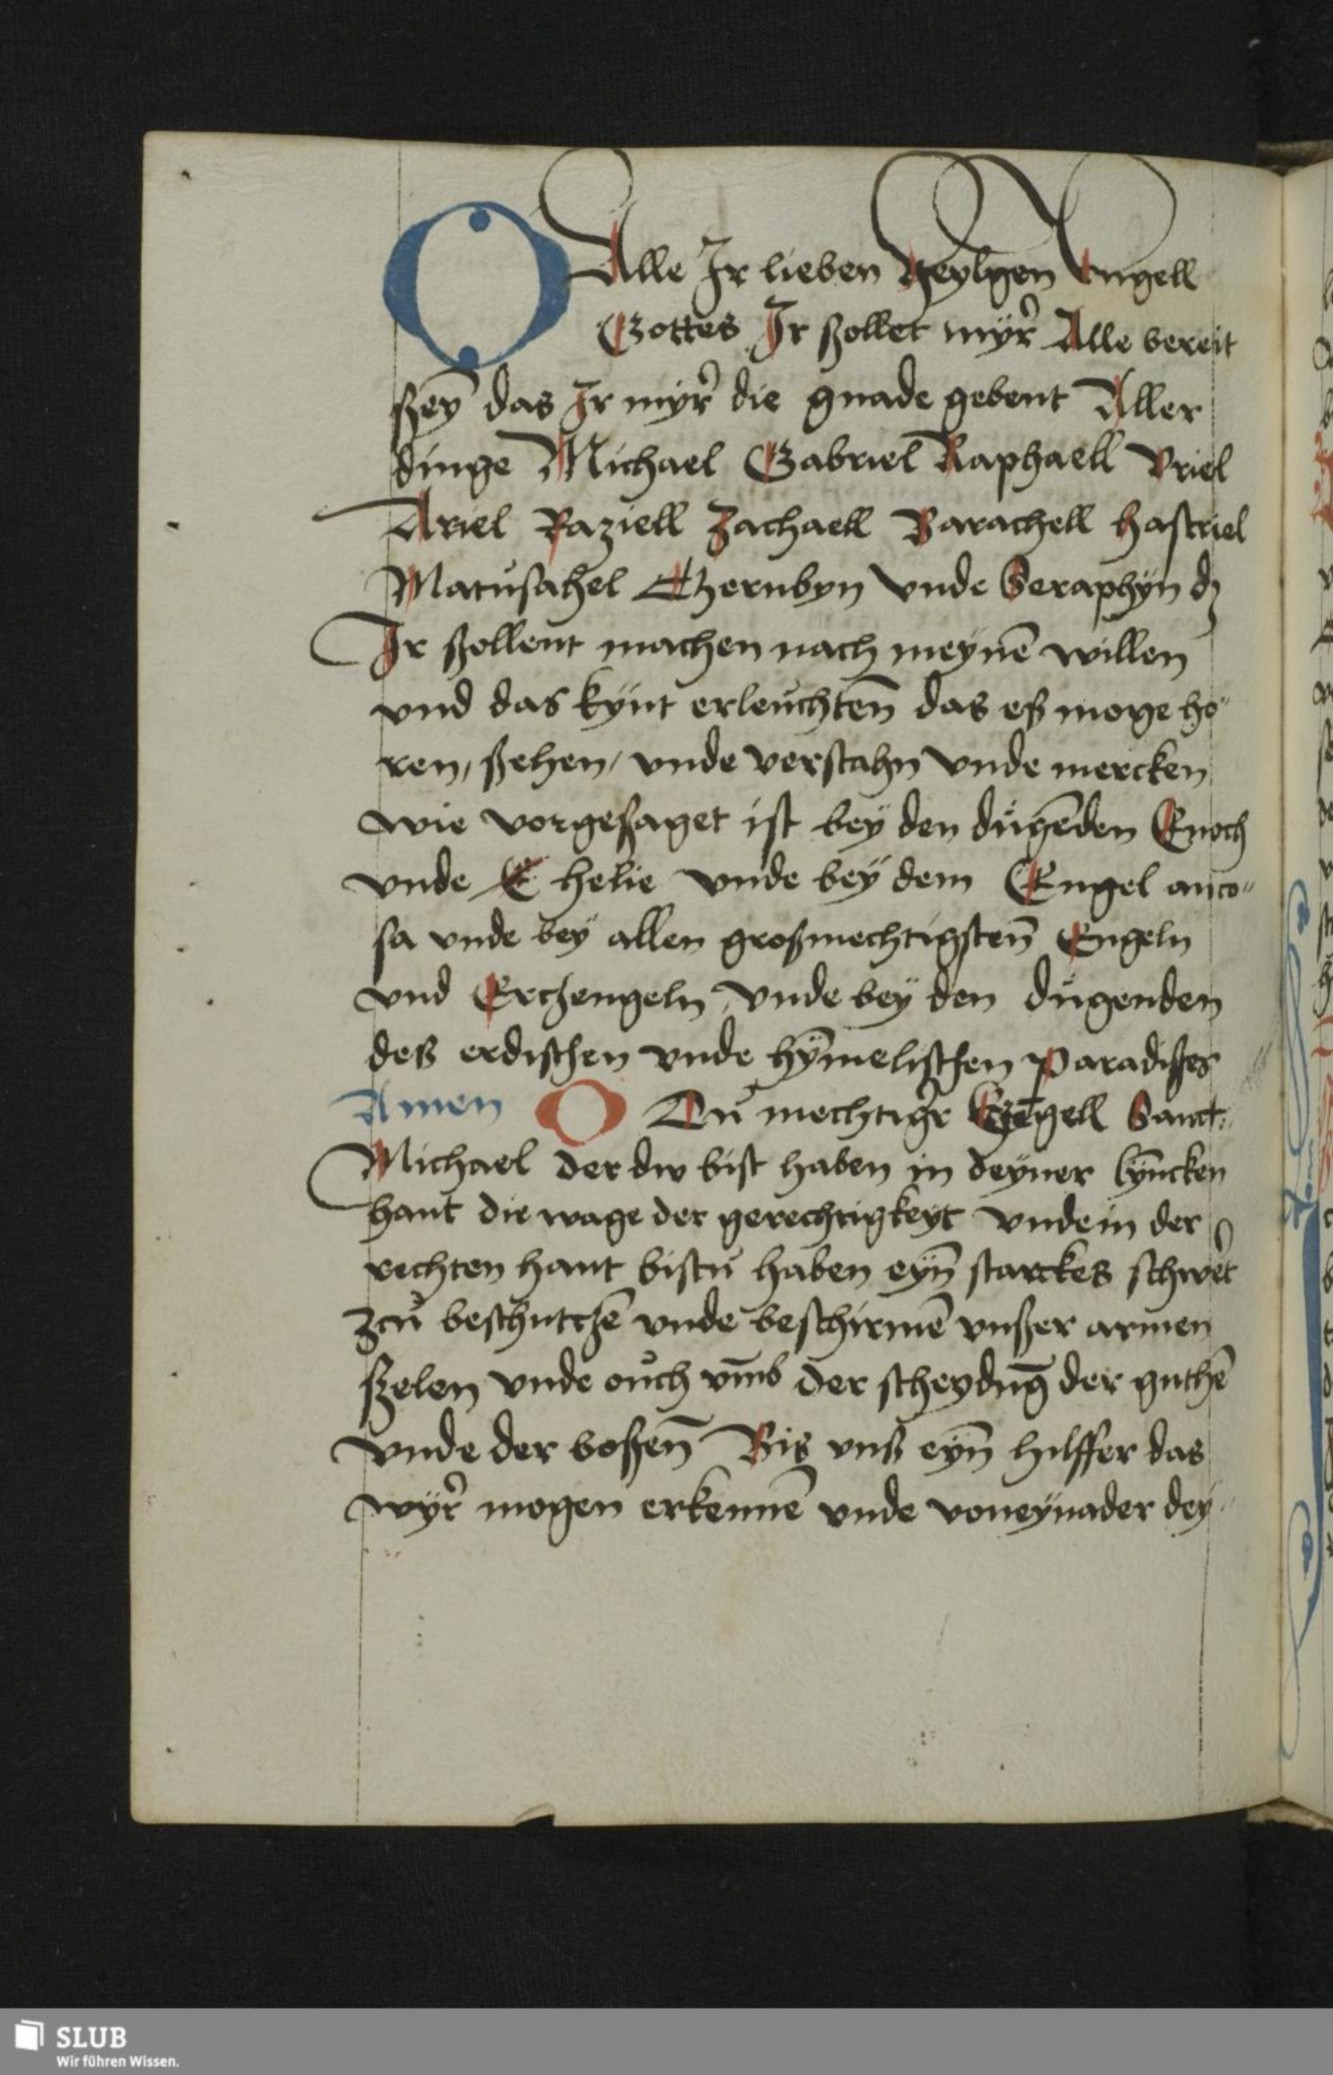 O Alle Jr lieben heylgen Engell
Gottes Jr ßollet myr Alle bereit
ßey̅ das Jr myr die gnade gebent Aller
dinge Michael Gabriel Raphaell Vriel
Ariel Raziell Zachaell Barachell hastriel
Matusahel Tzerubyn vnde Seraphyn dz
Jr ßollent machen nach meyne̅ willen
vnd das kynt erleuchten̅ das eß moge ho"
ren, ßehen, vnde verstahn vnde mercken
wie vorgesaget ist bey den duge̅den Enoch
vnde E helie vnde bey dem Engel anco"
sa vnde bey allen großmechtigsten̅ Engeln
vnd Erczengeln, vnde bey den dugenden
deß erdischen vnde hy̅melischen Paradißes
Amen O Du mechtiger Ercze̅gell Sanct:
Michael der dw bist haben in deyner lyncken
hant die wage der gerechtigkeyt vnde in der
rechten hant bistu haben eyn̅ starckes schwert
zcu beschutcze̅ vnde beschirme̅ vnßer armen
ßelen vnde ouch vm̅b der scheydu̅g der guthe̅
vnde der boßen̅ Bis vnß eyn̅ hilffer das
wyr mogen erkenne̅ vnde voneynader dey"
SLUB
Wir führen Wissen.